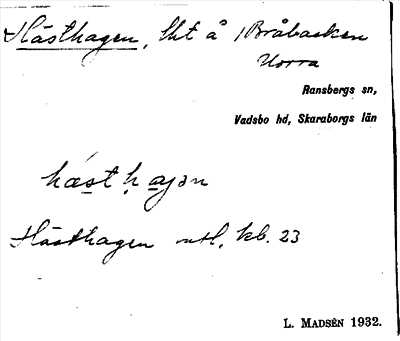 Hästhagen, lht å Bråbacken
Norra
Ransbergs sn,
Vadsbo hd, Skaraborgs län
hæst hagən
Hästhagen utt. kb. 23
L. MADSÉN 1932.